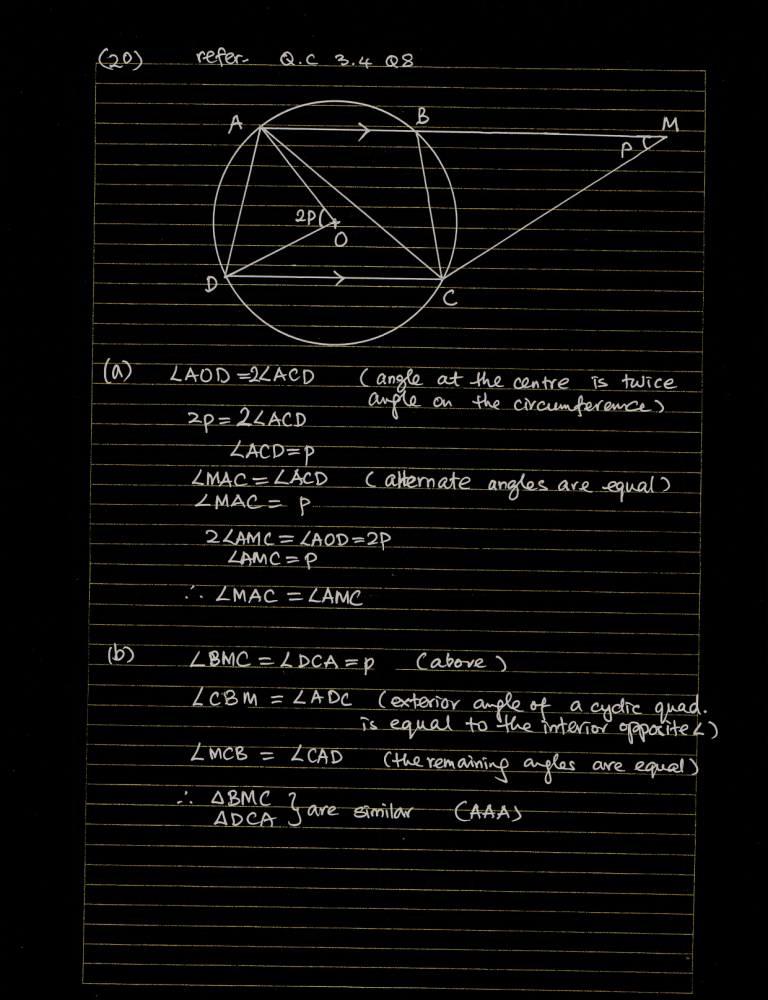 (20) refer Q.C 3.4 Q8
A B M
p
2p
O
D C
(a) ∠AOD = 2∠ACD (angle at the centre is twice
angle on the circumference)
2p = 2∠ACD
∠ACD = p
∠MAC = ∠ACD (alternate angles are equal)
∠MAC = p
2∠AMC = ∠AOD = 2p
∠AMC = p
∴ ∠MAC = ∠AMC
(b) ∠BMC = ∠DCA = p (above)
∠CBM = ∠ADC (exterior angle of a cyclic quad.
is equal to the interior opposite ∠)
∠MCB = ∠CAD (the remaining angles are equal)
∴ △BMC
△DCA } are similar (AAA)